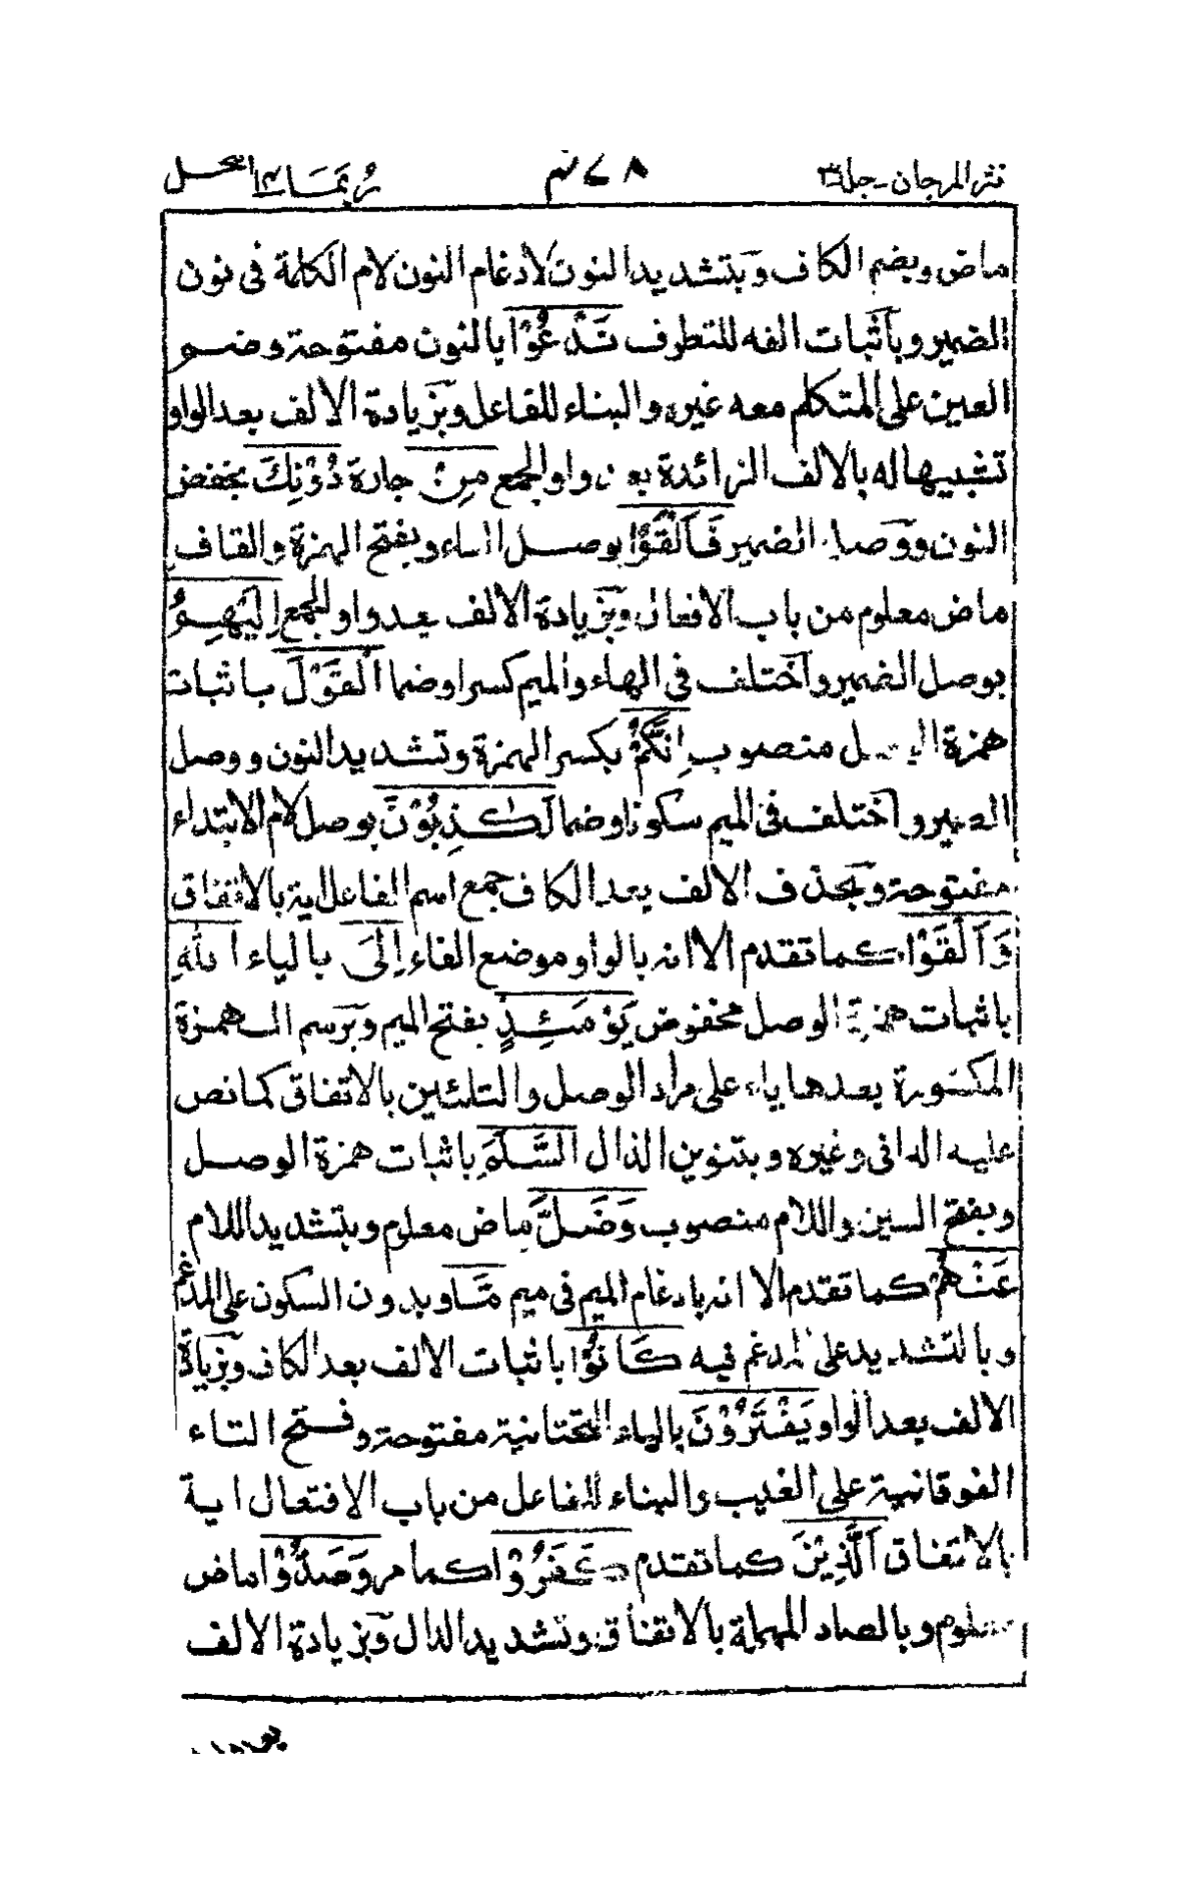 نثر المرجان - جلد ٣ ٤٧٨ ربما ١٤ النحل
ماض وبضم الكاف وبتشديد النون لادغام النون لام الكلمة فى نون
الضمير وباثبات الفه للتطرف نَدْعُوْا بالنون مفتوحة وضم
العين على المتكلم معه غيره والبناء للفاعل وبزيادة الالف بعد الواو
تشبيهاله بالالف الزائدة بعد واو الجمع مِنْ جارة دُوْنِكَ بخفض
النون ووصل الضمير فَاَلْقَوْا بوصل الفاء وبفتح الهمزة والقاف
ماض معلوم من باب الافعال وبزيادة الالف بعد واو الجمع اِلَيْهِمُ
بوصل الضمير واختلف فى الهاء والميم كسرا وضما الْقَوْلَ باثبات
همزة الوصل منصوب اِنَّكُمْ بكسر الهمزة وتشديد النون ووصل
الضمير واختلف فى الميم سكونا وضما لَكٰذِبُوْنَ بوصل لام الابتداء
مفتوحة وبحذف الالف بعد الكاف جمع اسم الفاعل اية بالاتفاق
وَاَلْقَوْا كما تقدم الا انه بالواو موضع الفاء اِلَى بالياء اللهِ
باثبات همزة الوصل مخفوض يَوْمَئِذٍ بفتح الميم وبرسم الهمزة
المكسورة بعدها ياء على مراد الوصل والتلئين بالاتفاق كمانص
عليه الدانى وغيره وبتنوين الذال السَّلَمَ باثبات همزة الوصل
وبفتح السين واللام منصوب وَضَلَّ ماض معلوم وبتشديد اللام
عَنْهُمْ كما تقدم الا انه بادغام الميم فى ميم مَّا وبدون السكون على المدغم
وبالتشديد على المدغم فيه كَانُوْا باثبات الالف بعد الكاف وبزيادة
الالف بعد الواو يَفْتَرُوْنَ بالياء التحتانية مفتوحة وفتح التاء
الفوقانية على الغيب والبناء للفاعل من باب الافتعال اية
بالاتفاق اَلَّذِيْنَ كما تقدم كَفَرُوْا كما مر وَصَدُّوْا ماض
معلوم وبالصاد المهملة بالاتفاق وتشديد الدال وبزيادة الالف